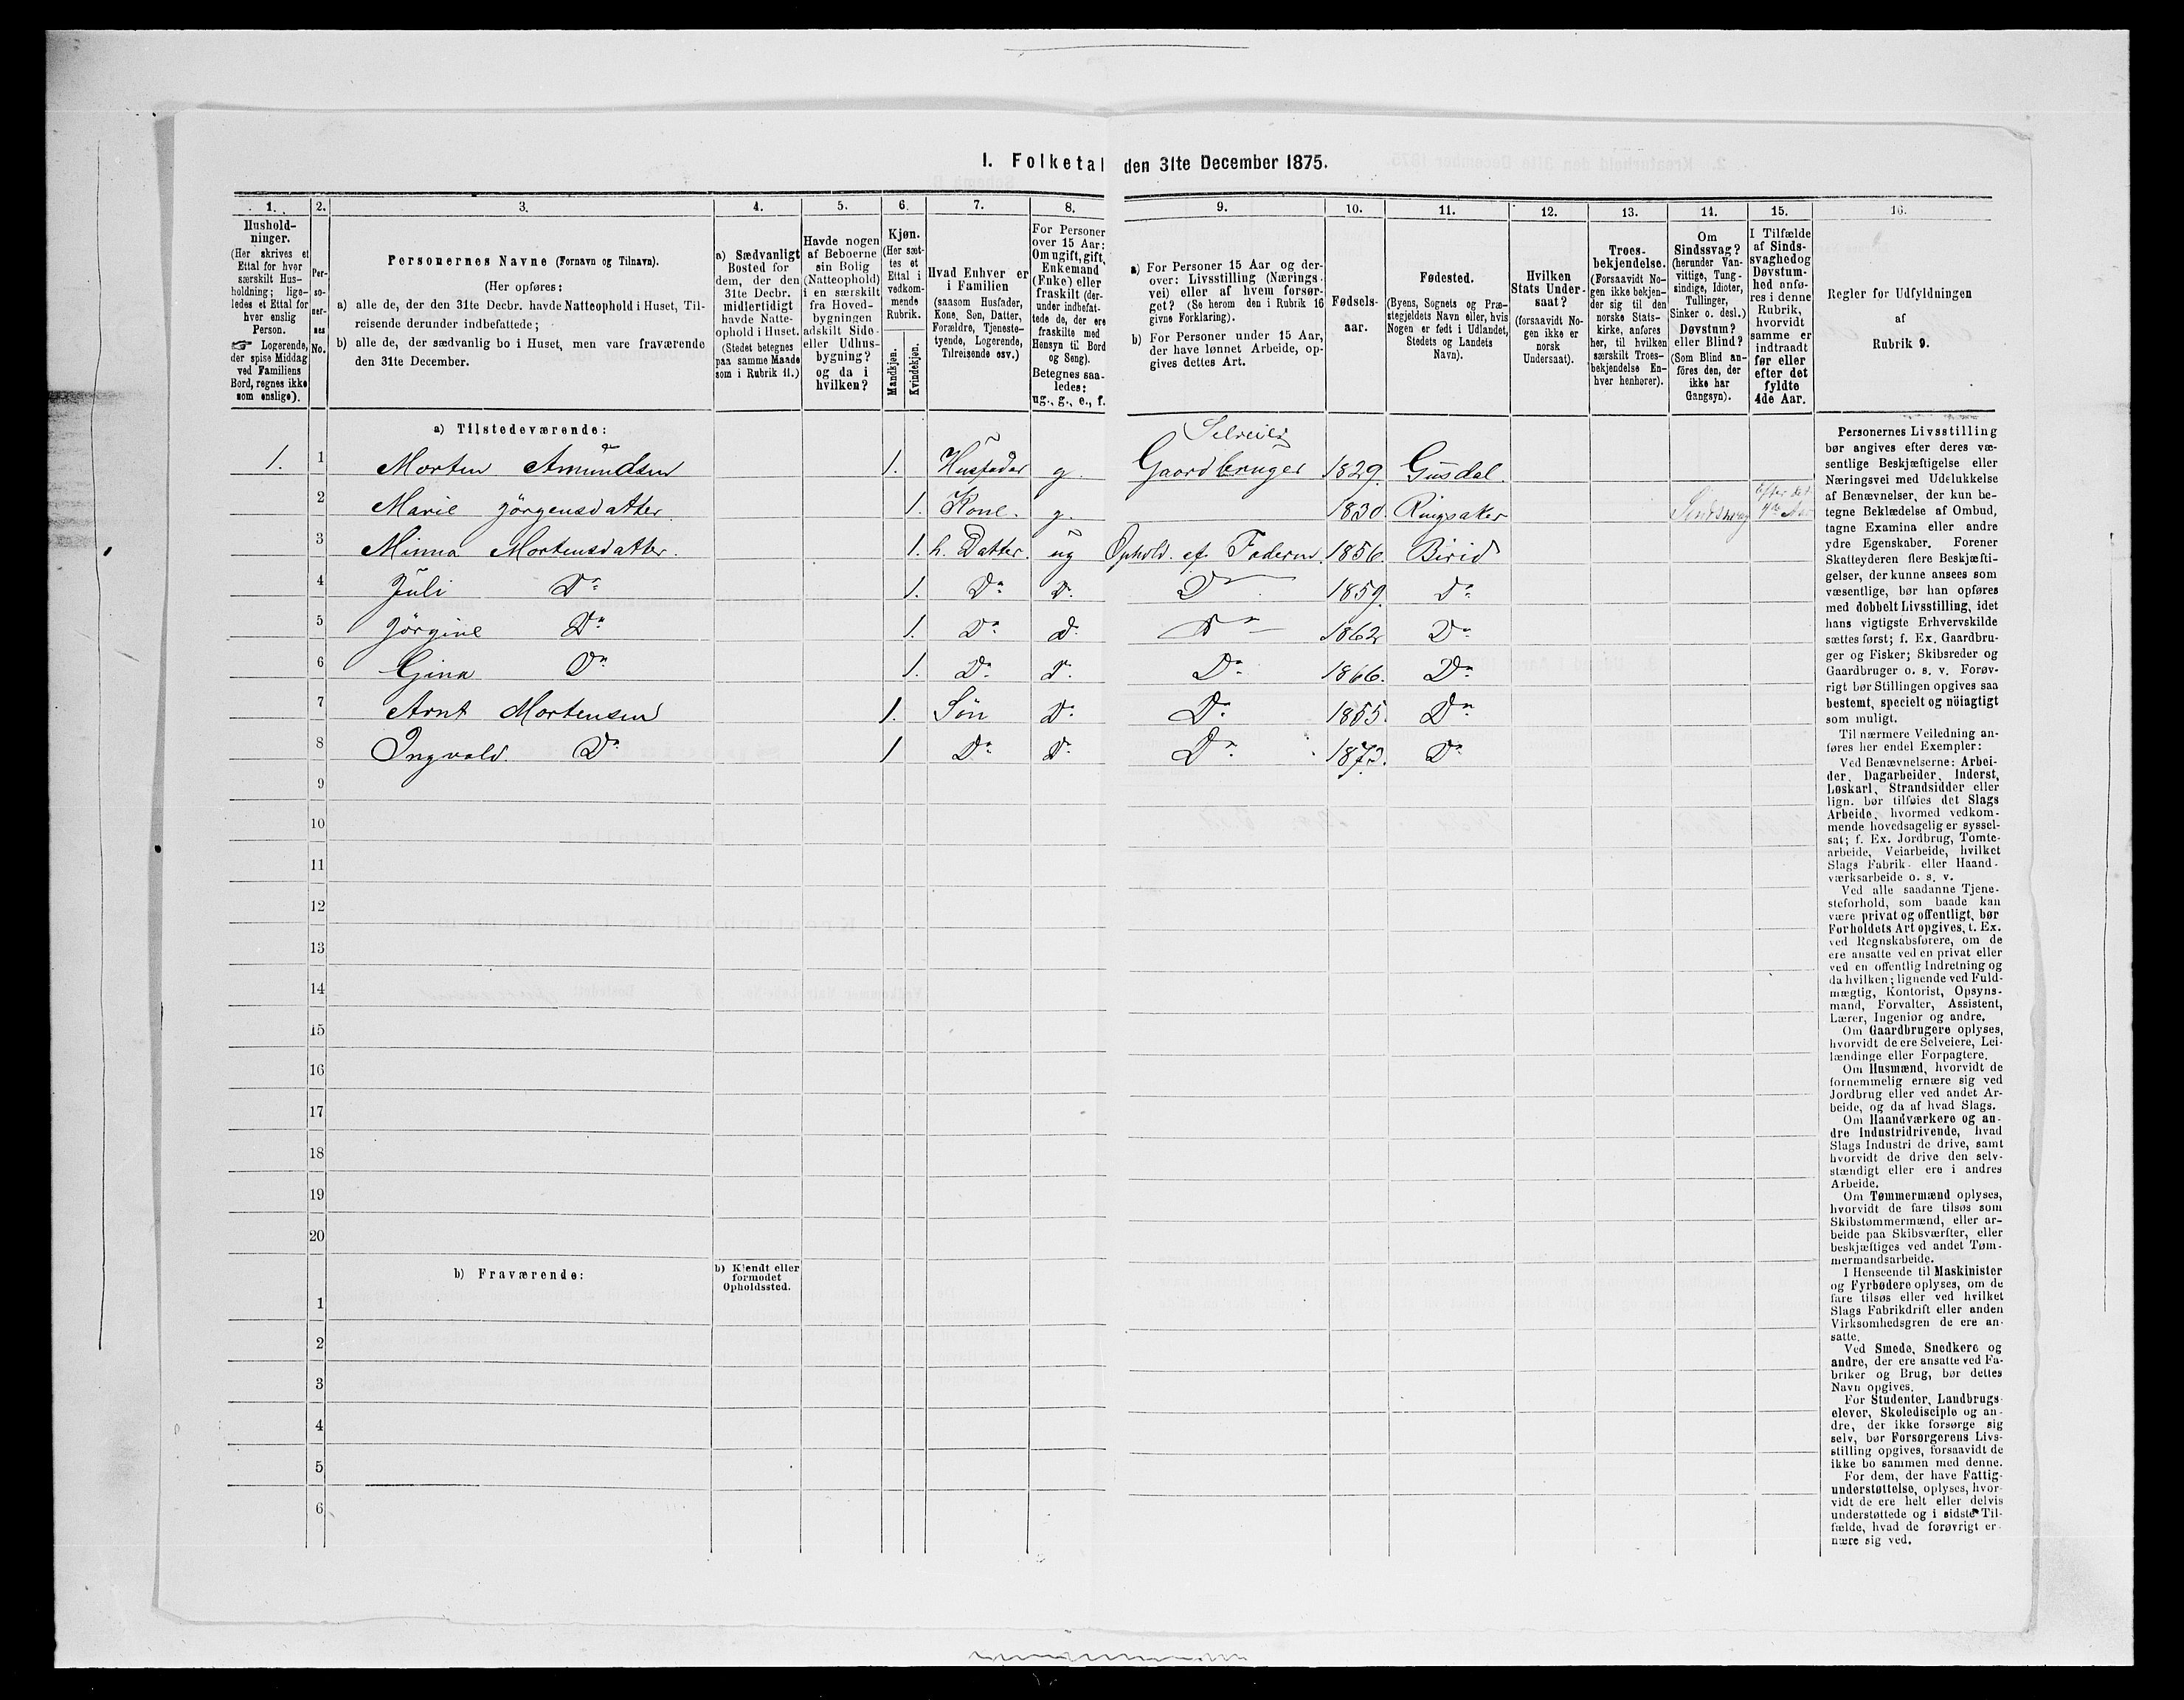 1. Folketal den 31te December 1875.
1. 2. 3. 4. 5. 6. 7. 8. 9. 10. 11. 12. 13. 14. 15. 16.
Hushold-
ninger.
(Her skrives et
Ettal for hver
særskilt Hus-
holdning; lige-
ledes et Ettal for
hver enslig
Person.
☞ Logerende,
der spise Middag
ved Familiens
Bord, regnes ikke
som enslige).
Per-
so-
ner-
nes
No.
Personernes Navne (Fornavn og Tilnavn).
(Her opføres:
a) alle de, der den 31te Decbr. havde Natteophold i Huset, Til-
reisende derunder indbefattede;
b) alle de, der sædvanlig bo i Huset, men vare fraværende
den 31te December.
a) Sædvanligt
Bosted for
dem, der den
31te Decbr.
midlertidigt
havde Natte-
ophold i Huset.
(Stedet betegnes
paa samme Maade
som i Rubrik 11.)
Havde nogen
af Beboerne
sin Bolig
(Natteophold)
i en særskilt
fra Hoved-
bygningen
adskilt Side-
eller Udhus-
bygning?
og da i
hvilken?
Kjøn.
(Her sæt-
tes et
Ettal i
vedkom-
mende
Rubrik.
Mandkjøn.
Kvindekjøn.
Hvad Enhver er
i Familien
(saasom Husfader,
Kone, Søn, Datter,
Forældre, Tjeneste-
tyende, Logerende,
Tilreisende osv.)
For Personer
over 15 Aar:
Om ugift, gift,
Enkemand
(Enke) eller
fraskilt (der-
under indbefat-
tede de, der ere
fraskilte med
Hensyn til Bord
og Seng).
Betegnes saa-
ledes:
ug., g., e., f.
a) For Personer 15 Aar og der-
over: Livsstilling (Nærings-
vei) eller af hvem forsør-
get? (Se herom den i Rubrik 16
givne Forklaring).
b) For Personer under 15 Aar,
der have lønnet Arbeide, op-
gives dettes Art.
Fødsels-
aar.
Fødested.
(Byens, Sognets og Præ-
stegjeldets Navn eller, hvis
Nogen er født i Udlandet,
Stedets og Landets
Navn).
Hvilken
Stats Under-
saat?
(forsaavidt No-
gen ikke er
norsk
Undersaat).
Troes-
bekjendelse.
(Forsaavidt No-
gen ikke bekjen-
der sig til den
norske Stats-
kirke, anføres
her, til hvilken
særskilt Troes-
bekjendelse En-
hver henhører).
Om
Sindssvag?
(herunder Van-
vittige, Tung-
sindige, Idioter,
Tullinger,
Sinker o. desl.)
Døvstum?
eller Blind?
(Som Blind an-
föres den, der
ikke har
Gangsyn).
I Tilfælde
af Sinds-
svaghed og
Døvstum-
hed anfø-
res i denne
Rubrik,
hvorvidt
samme er
indtraadt
før eller
efter det
fyldte
4de Aar.
Regler for Udfyldningen
af
Rubrik 9.
a) Tilstedeværende:
Selveier
1. 1 Morten Amundsen 1. Husfader g. Gaardbruger 1829. Gusdal.
2 Marie Jörgensdatter. 1. Kone. g. 1830. Ringsaker Sindssvag Efter det 4de Aar
3 Minna Mortensdatter. 1. h. Datter. ug Ophold. af. Faderen. 1856. Birid
4 Juli Do 1. Do D. Do 1859. do
5 Jörgine Do 1. Do d. Do 1862 Do
6 Gina Do 1. Do d. Do 1866. Do
7 Arnt Mortensen 1. Sön D. Do 1855. Do
8 Ingvald. Do 1 Do D. Do 1873. Do
9
10
11
12
13
14
15
16
17
18
19
20
b) Fraværende:
b) Kjendt eller
formodet
Opholdssted.
1
2
3
4
5
6
Personernes Livsstilling
bør angives efter deres væ-
sentlige Beskjæftigelse eller
Næringsvei med Udelukkelse
af Benævnelser, der kun be-
tegne Beklædelse af Ombud,
tagne Examina eller andre
ydre Egenskaber. Forener
Skatteyderen flere Beskjæfti-
gelser, der kunne ansees som
væsentlige, bør han opføres
med dobbelt Livsstilling, idet
hans vigtigste Erhvervskilde
sættes først; f. Ex. Gaardbru-
ger og Fisker; Skibsreder og
Gaardbruger o. s. v. Forøv-
rigt bør Stillingen opgives saa
bestemt, specielt og nöiagtigt
som muligt.
Til nærmere Veiledning an-
føres her endel Exempler:
Ved Benævnelserne: Arbei-
der, Dagarbeider, Inderst,
Løskarl, Strandsidder eller
lign. bør tilføies det Slags
Arbeide, hvormed vedkom-
mende hovedsagelig er syssel-
sat; f. Ex. Jordbrug, Tomte-
arbeide, Veiarbeide, hvilket
Slags Fabrik- eller Haand-
værksarbeide o. s. v.
Ved alle saadanne Tjene-
steforhold, som baade kan
være privat og offentligt, bør
Forholdets Art opgives, t. Ex.
ved Regnskabsførere, om de
ere ansatte ved en privat eller
ved en offentlig Indretning og
da hvilken; lignende ved Fuld-
mægtig, Kontorist, Opsyns-
mand, Forvalter, Assistent,
Lærer, Ingeniør og andre.
Om Gaardbrugere oplyses,
hvorvidt de ere Selveiere, Lei-
lændinge eller Forpagtere.
Om Husmænd, hvorvidt de
fornemmelig ernære sig ved
Jordbrug eller ved andet Ar-
beide, og da af hvad Slags.
Om Haandværkere og an-
dre Industridrivende, hvad
Slags Industri de drive, samt
hvorvidt de drive den selv-
stændigt eller ere i andres
Arbeide.
Om Tømmermænd oplyses,
hvorvidt de fare tilsøs som
Skibstømmermænd, eller ar-
beide paa Skibsværfter, eller
beskjæftiges ved andet Tøm-
mermandsarbeide.
I Henseende til Maskinister
og Fyrbødere oplyses, om de
fare tilsøs eller ved hvilket
Slags Fabrikdrift eller anden
Virksomhedsgren de ere an-
satte.
Ved Smede, Snedkere og
andre, der ere ansatte ved Fa-
briker og Brug, bør dettes
Navn opgives.
For Studenter, Landbrugs-
elever, Skoledisciple og an-
dre, der ikke forsørge sig
selv, bør Forsørgerens Livs-
stilling opgives, forsaavidt de
ikke bo sammen med denne.
For dem, der have Fattig-
understøttelse, oplyses, hvor-
vidt de ere helt eller delvis
understøttede og i sidste Til-
fælde, hvad de forøvrigt er-
nære sig ved.